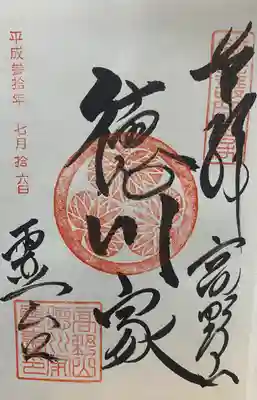 奉拝
高野山
徳川家
霊台
平成参拾年 七月拾六日